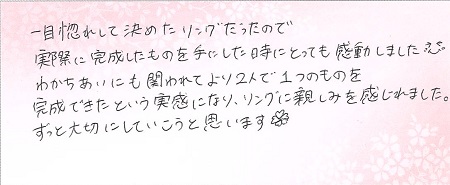 一目惚れして決めたリングだったので
実際に完成したものを手にした時にとっても感動しました
わかちあいにも関われてより2人で1つのものを
完成できたという実感になり、リングに親しみを感じれました。
ずっと大切にしていこうと思います